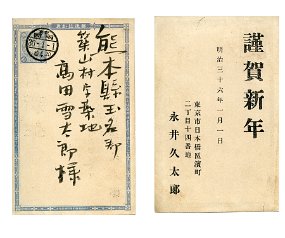 熊本縣玉名郡
築山村字築地
高田雪太郎様
謹賀新年
明治三十六年一月一日
東京市日本橋區濱町
二丁目十四番地
永井久太郎